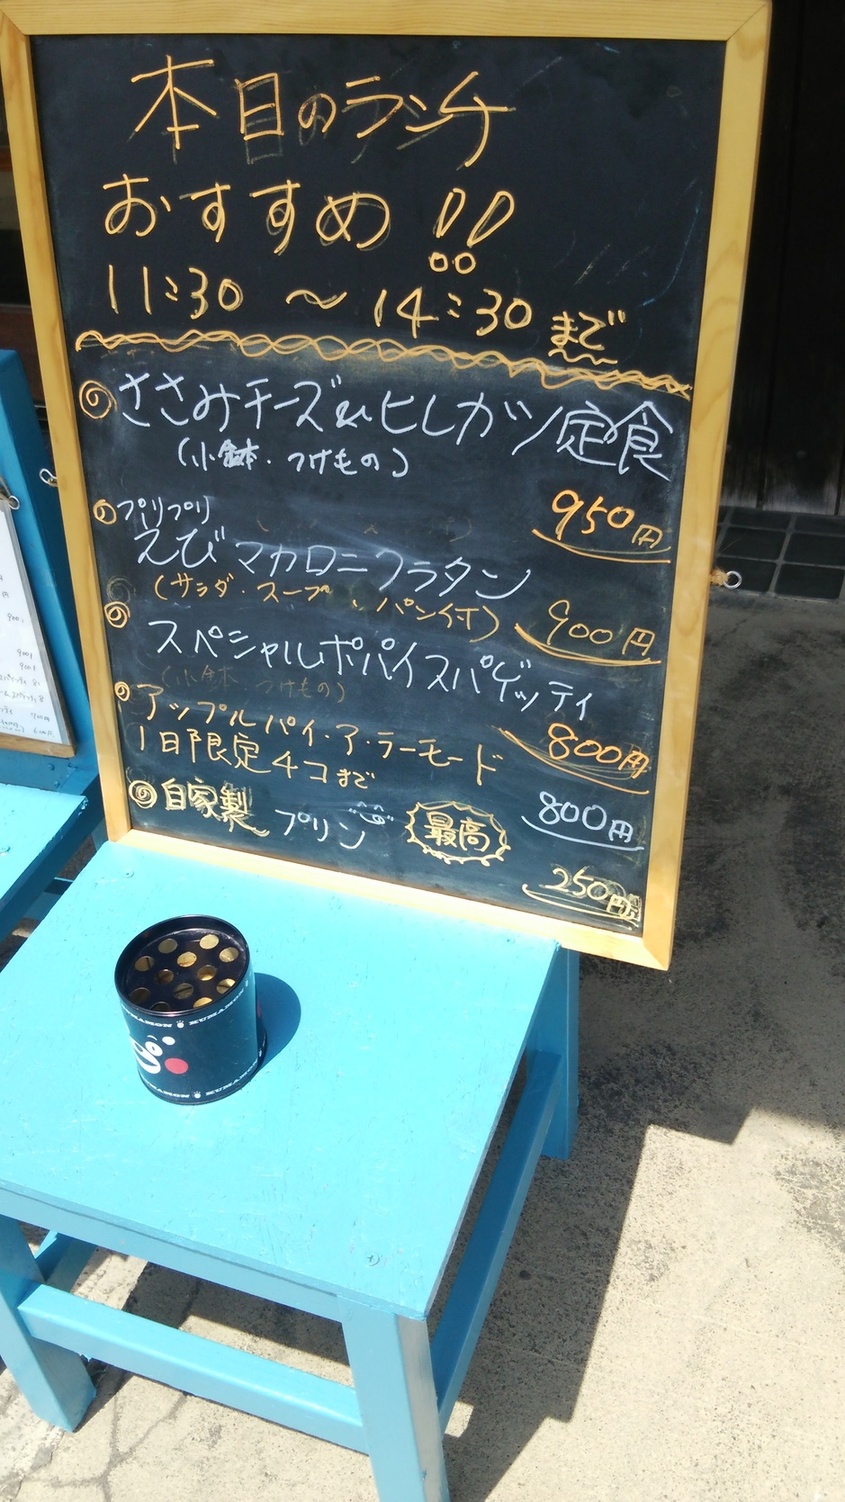 本日のランチ
おすすめ!!
11:30 ～ 14:30 まで
ささみチーズ&ヒレカツ定食
(小鉢・つけもの)
950円
プリプリ
えびマカロニグラタン
(サラダ・スープ、パン付)
900円
スペシャルポパイスパゲッティ
(小鉢 つけもの)
800円
アップルパイ・ア・ラ・モード
1日限定4コまで
800円
自家製 プリン 最高
250円
KUMAMON KUMAMON
KUMAMON KUMAMON